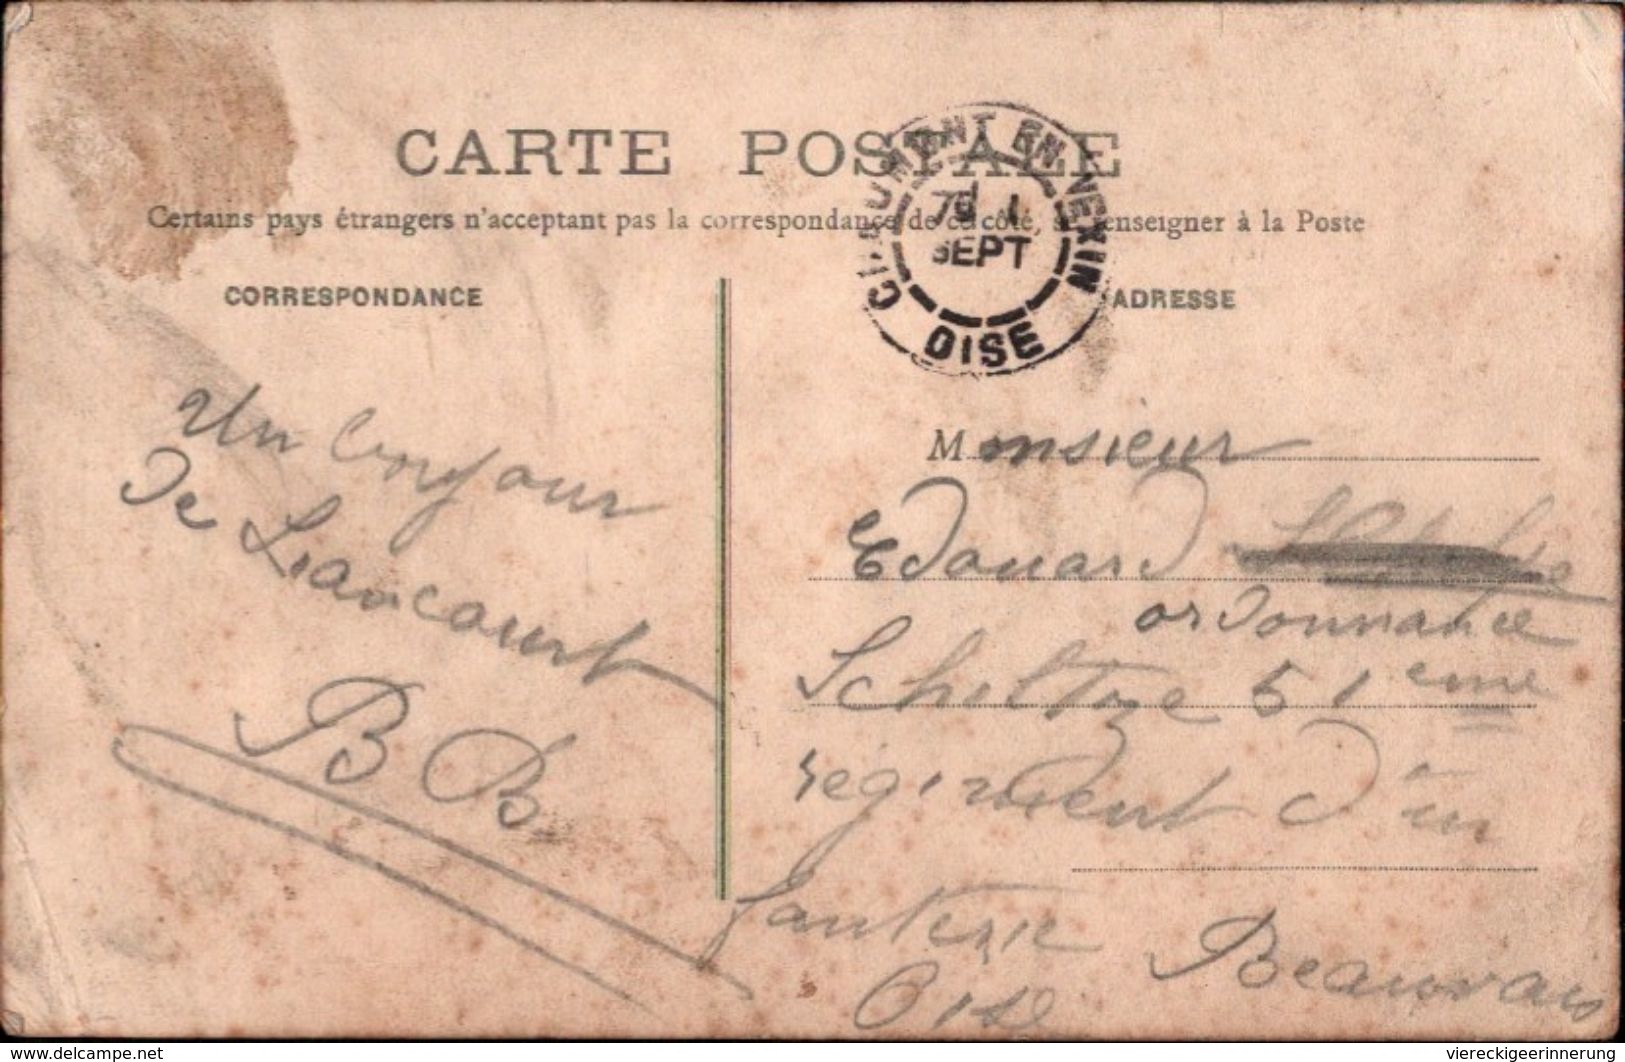 CARTE POSTALE
Certains pays étrangers n'acceptant pas la correspondance de ce côté, se renseigner à la Poste
CORRESPONDANCE
ADRESSE
CHAUMONT EN VEXIN
SEPT
OISE
Un bonjour
De Liancourt
B B
Monsieur
Edouard
ordonnance
Scheltze 51eme
régiment D'in
fanterie
Beauvais
Oise
www.delcampe.net
viereckigeerinnerung